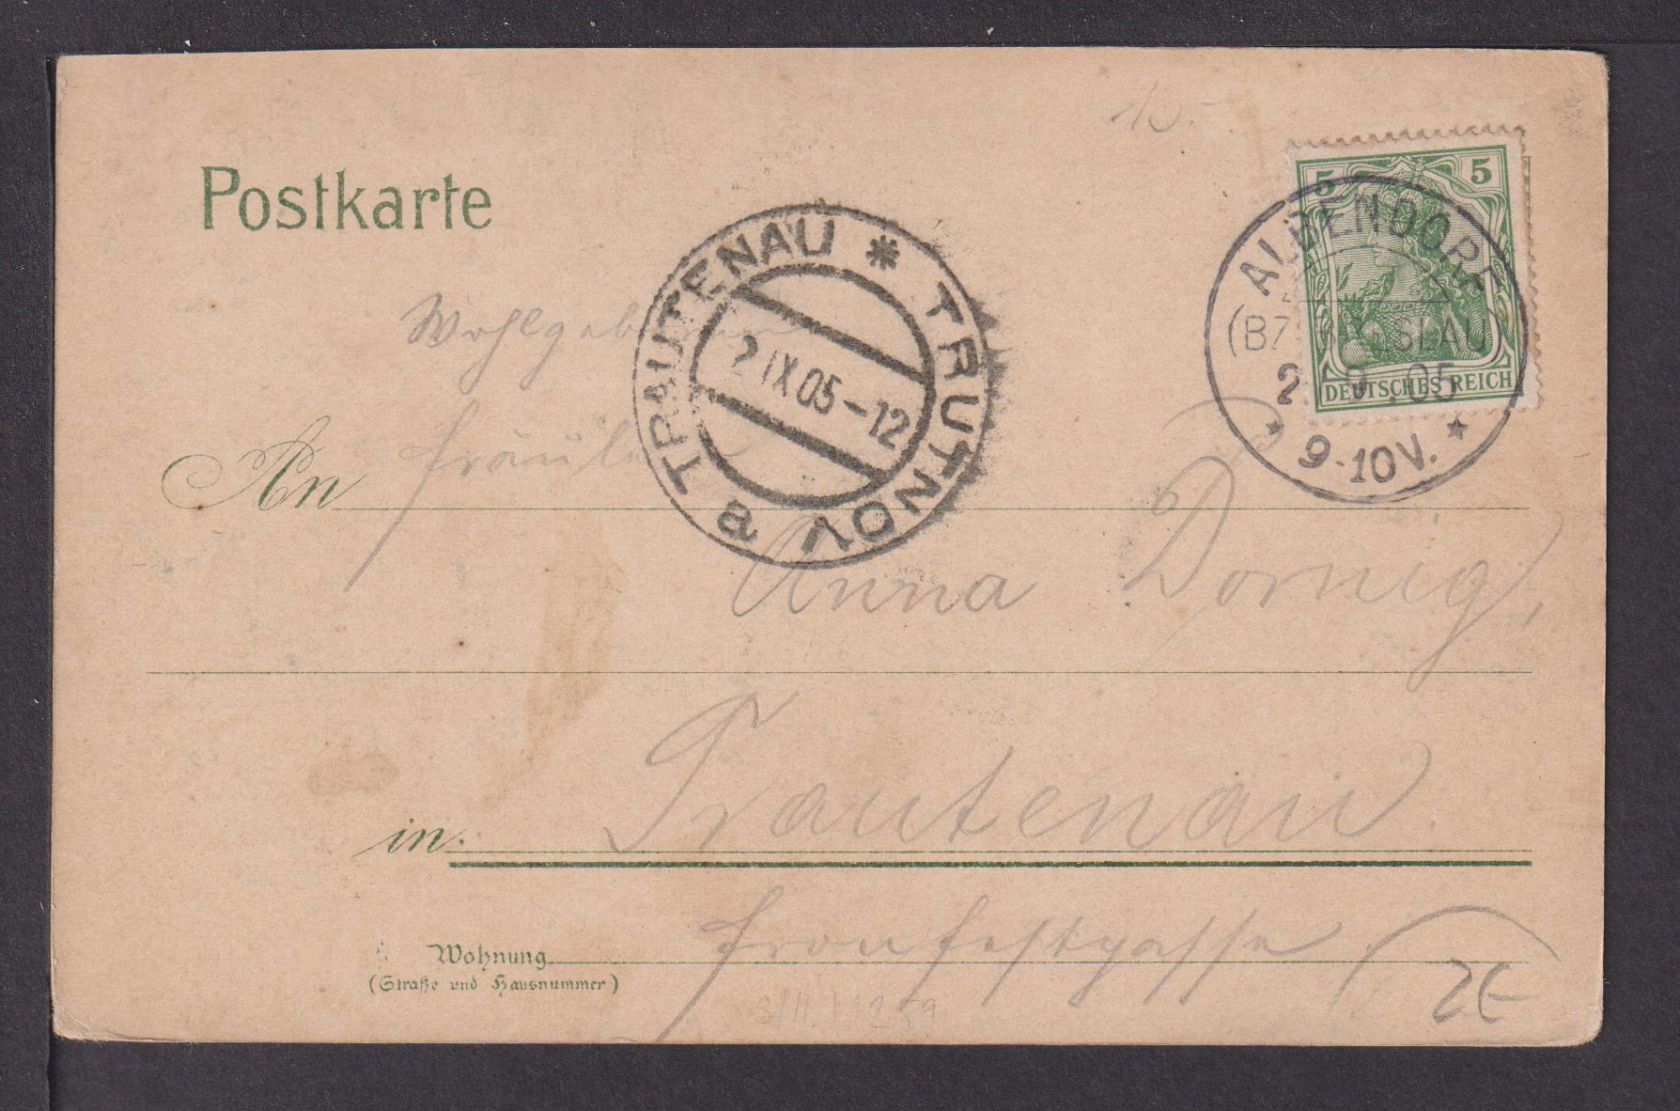 Postkarte
5 5
DEUTSCHES REICH
ALBENDORF
(BZ. BRESLAU)
2 9 05
9-10V.
TRAUTENAU * TRUTNOV a
2 IX 05-12
Wohlgeboren
An Fräulein
Anna Dornig,
in Trautenau.
Wohnung Fronfestgasse
(Straße und Hausnummer)
2€